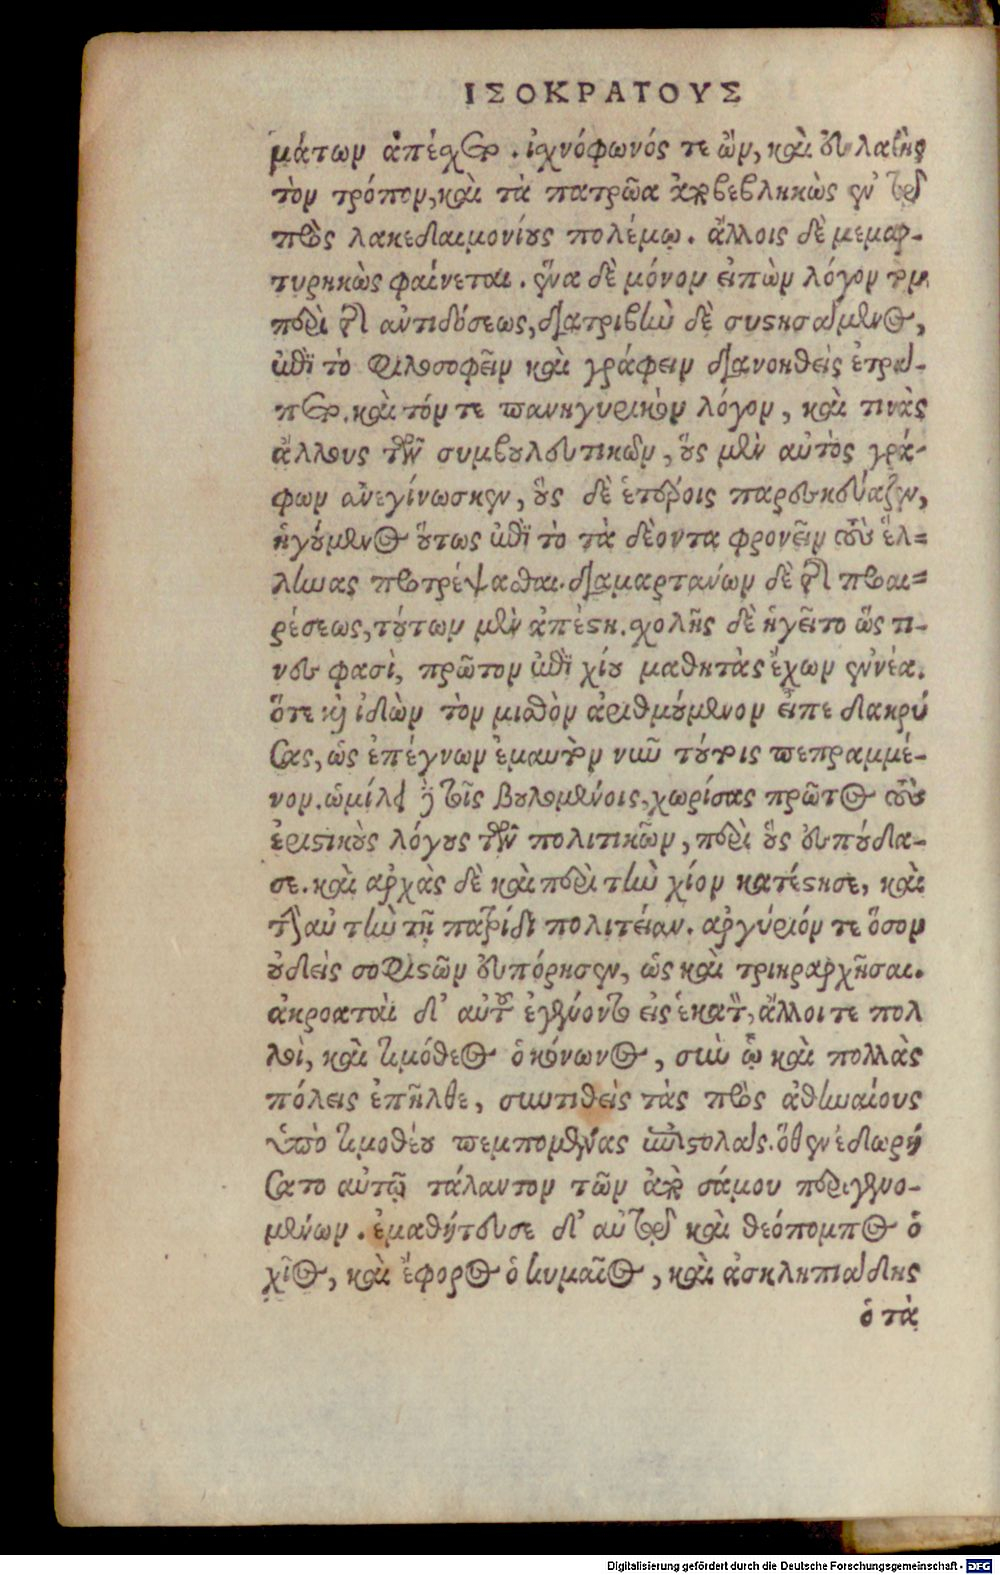 ΙΣΟΚΡΑΤΟΥΣ
μάτων ἀπέσχετο. ἰσχνόφωνός τε ὢν, καὶ εὐλαβὴς
τὸν τρόπον, καὶ τὰ πατρῶα ἀποβεβληκὼς ἐν τῷ
πρὸς λακεδαιμονίους πολέμῳ. ἄλλοις δὲ μεμαρ-
τυρηκὼς φαίνεται. ἕνα δὲ μόνον εἰπὼν λόγον τὸν
περὶ τῆς ἀντιδόσεως, διατριβὴν δὲ συστησάμενος,
ἐπὶ τὸ φιλοσοφεῖν καὶ γράφειν διανοηθεὶς ἐτρά-
πετο. καὶ τόν τε πανηγυρικὸν λόγον, καὶ τινὰς
ἄλλους τῶν συμβουλευτικῶν, οὓς μὲν αὐτὸς γρά-
φων ἀνεγίνωσκεν, οὓς δὲ ἑτέροις παρεσκεύαζεν,
ἡγούμενος οὕτως ἐπὶ τὸ τὰ δέοντα φρονεῖν τοὺς ἕλ=
ληνας προτρέψασθαι. διαμαρτανων δὲ τῆς προαι=
ρέσεως, τούτων μὲν ἀπέστη. σχολῆς δὲ ἡγεῖτο ὥς τι-
νες φασὶ, πρῶτον ἐπὶ χίου μαθητὰς ἔχων ἐννέα.
ὅτε καὶ ἰδὼν τὸν μισθὸν ἀριθμούμενον εἶπε δακρύ
σας, ὡς ἐπέγνων ἐμαυτὸν νῦν τούτοις πεπραμμέ-
νον. ὡμίλει δὲ τοῖς βουλομένοις, χωρίσας πρῶτος τοὺς
ἐριστικοὺς λόγους τῶν πολιτικῶν, περὶ οὓς ἐσπούδα-
σε. καὶ ἀρχὰς δὲ καὶ περὶ τὴν χίον κατέστησε, καὶ
τὴν αὐτὴν τῇ πατρίδι πολιτείαν. ἀργύριόν τε ὅσον
οὐδεὶς σοφιστῶν εὐπόρησεν, ὡς καὶ τριηραρχῆσαι.
ἀκροαταὶ δ’ αὐτοῦ ἐγένοντο εἰς ἑκατὸν, ἄλλοι τε πολ
λοὶ, καὶ τιμόθεος ὁ κόνωνος, σὺν ᾧ καὶ πολλὰς
πόλεις ἐπῆλθε, συντιθεὶς τὰς πρὸς ἀθηναίους
ὑπὸ τιμοθέου πεμπομένας ἐπιστολάς. ὅθεν ἐδωρή
σατο αὐτῷ τάλαντον τῶν ἀπὸ σάμου περιγενο-
μένων. ἐμαθήτευσε δ’ αὐτῷ καὶ θεόπομπος ὁ
χῖος, καὶ ἔφορος ὁ κυμαῖος, καὶ ἀσκληπιάδης
ὁ τὰ
Digitalisierung gefördert durch die Deutsche Forschungsgemeinschaft - DFG